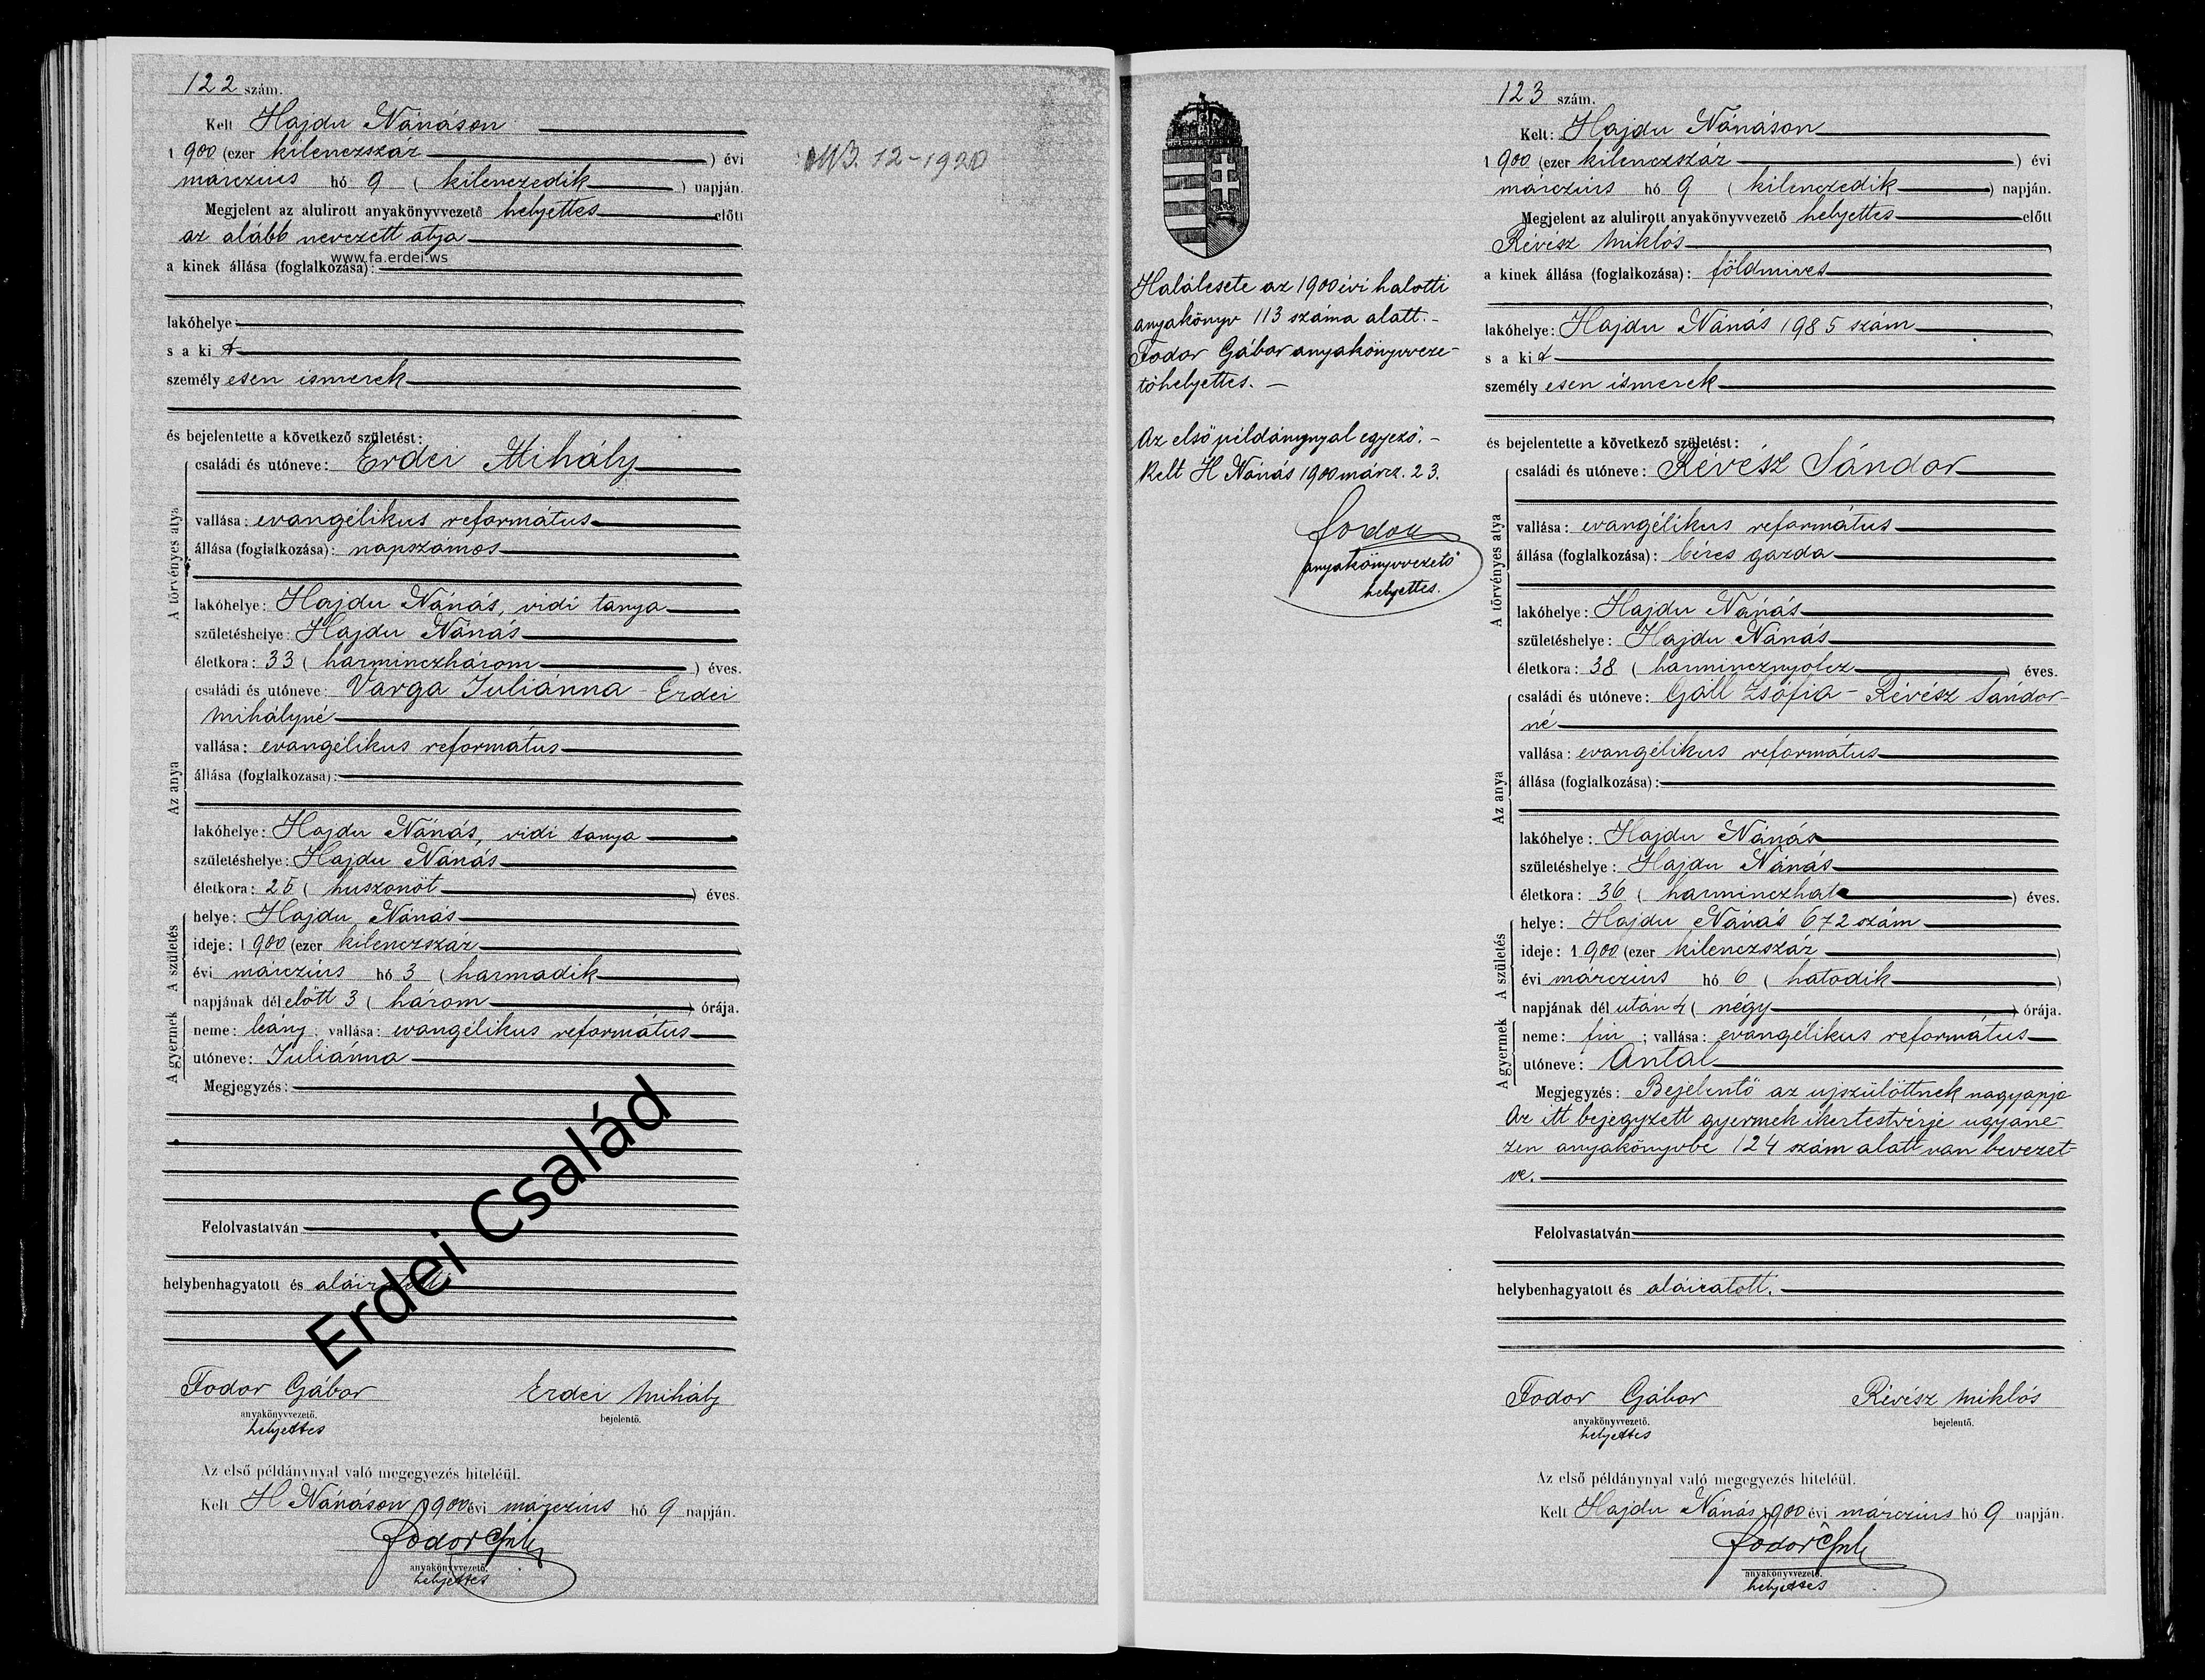 122 szám.
Kelt Hajdu Nánáson
1 900 (ezer kilenczszáz ) évi
márczius hó 9 ( kilenczedik ) napján.
Megjelent az alulirott anyakönyvvezető helyettes előtt
az alább nevezett atya
www.fa.erdei.ws
a kinek állása (foglalkozása):
lakóhelye:
s a ki t
személy esen ismerek
és bejelentette a következő születést:
A törvényes atya
családi és utóneve: Erdei Mihály
vallása: evangélikus református
állása (foglalkozása): napszámos
lakóhelye: Hajdu Nánás, vidi tanya
születéshelye: Hajdu Nánás
életkora: 33 ( harminczhárom ) éves.
Az anya
családi és utóneve: Varga Juliánna - Erdei
Mihályné
vallása: evangélikus református
állása (foglalkozása):
lakóhelye: Hajdu Nánás, vidi tanya
születéshelye: Hajdu Nánás
életkora: 25 ( huszonöt ) éves.
A születés
helye: Hajdu Nánás
ideje: 1 900 (ezer kilenczszáz
évi márczius hó 3 ( harmadik )
napjának dél előtt 3 ( három ) órája.
A gyermek
neme: leány; vallása: evangélikus református
utóneve: Juliánna
Megjegyzés:
Erdei Család
Felolvastatván
helybenhagyatott és aláiratott.
Fodor Gábor Erdei Mihály
anyakönyvvezető. bejelentő.
helyettes
Az első példánynyal való megegyezés hiteléül.
Kelt H Nánáson 1900 évi márczius hó 9 napján.
Fodor
anyakönyvvezető.
helyettes
12-1920
Halálesete az 1900 évi halotti
anyakönyv 113 száma alatt. -
Fodor Gábor anyakönyvveze-
tőhelyettes. -
Az első példánynyal egyező. -
Kelt H Nánás 1900 márcz. 23.
Fodor
anyakönyvvezető
helyettes.
123 szám.
Kelt: Hajdu Nánáson
1 900 (ezer kilenczszáz ) évi
márczius hó 9 ( kilenczedik ) napján.
Megjelent az alulirott anyakönyvvezető helyettes előtt
Révész Miklós
a kinek állása (foglalkozása): földmives
lakóhelye: Hajdu Nánás 1985 szám
s a ki t
személy esen ismerek
és bejelentette a következő születést:
A törvényes atya
családi és utóneve: Révész Sándor
vallása: evangélikus református
állása (foglalkozása): béres gazda
lakóhelye: Hajdu Nánás
születéshelye: Hajdu Nánás
életkora: 38 ( harmincznyolcz ) éves.
Az anya
családi és utóneve: Gáll Zsófia - Révész Sándor-
né
vallása: evangélikus református
állása (foglalkozása):
lakóhelye: Hajdu Nánás
születéshelye: Hajdu Nánás
életkora: 36 ( harminczhat ) éves.
A születés
helye: Hajdu Nánás 672 szám
ideje: 1 900 (ezer kilenczszáz )
évi márczius hó 6 ( hatodik )
napjának dél után 4 ( négy ) órája.
A gyermek
neme: fiu ; vallása: evangélikus református
utóneve: Antal
Megjegyzés: Bejelentő az ujszülöttnek nagyapja
Az itt bejegyzett gyermek ikertestvérje ugyane-
zen anyakönyvbe 124 szám alatt van bevezet-
ve.
Felolvastatván
helybenhagyatott és aláiratott.
Fodor Gábor Révész Miklós
anyakönyvvezető. bejelentő.
helyettes
Az első példánynyal való megegyezés hiteléül.
Kelt Hajdu Nánás 1900 évi márczius hó 9 napján.
Fodor
anyakönyvvezető.
helyettes